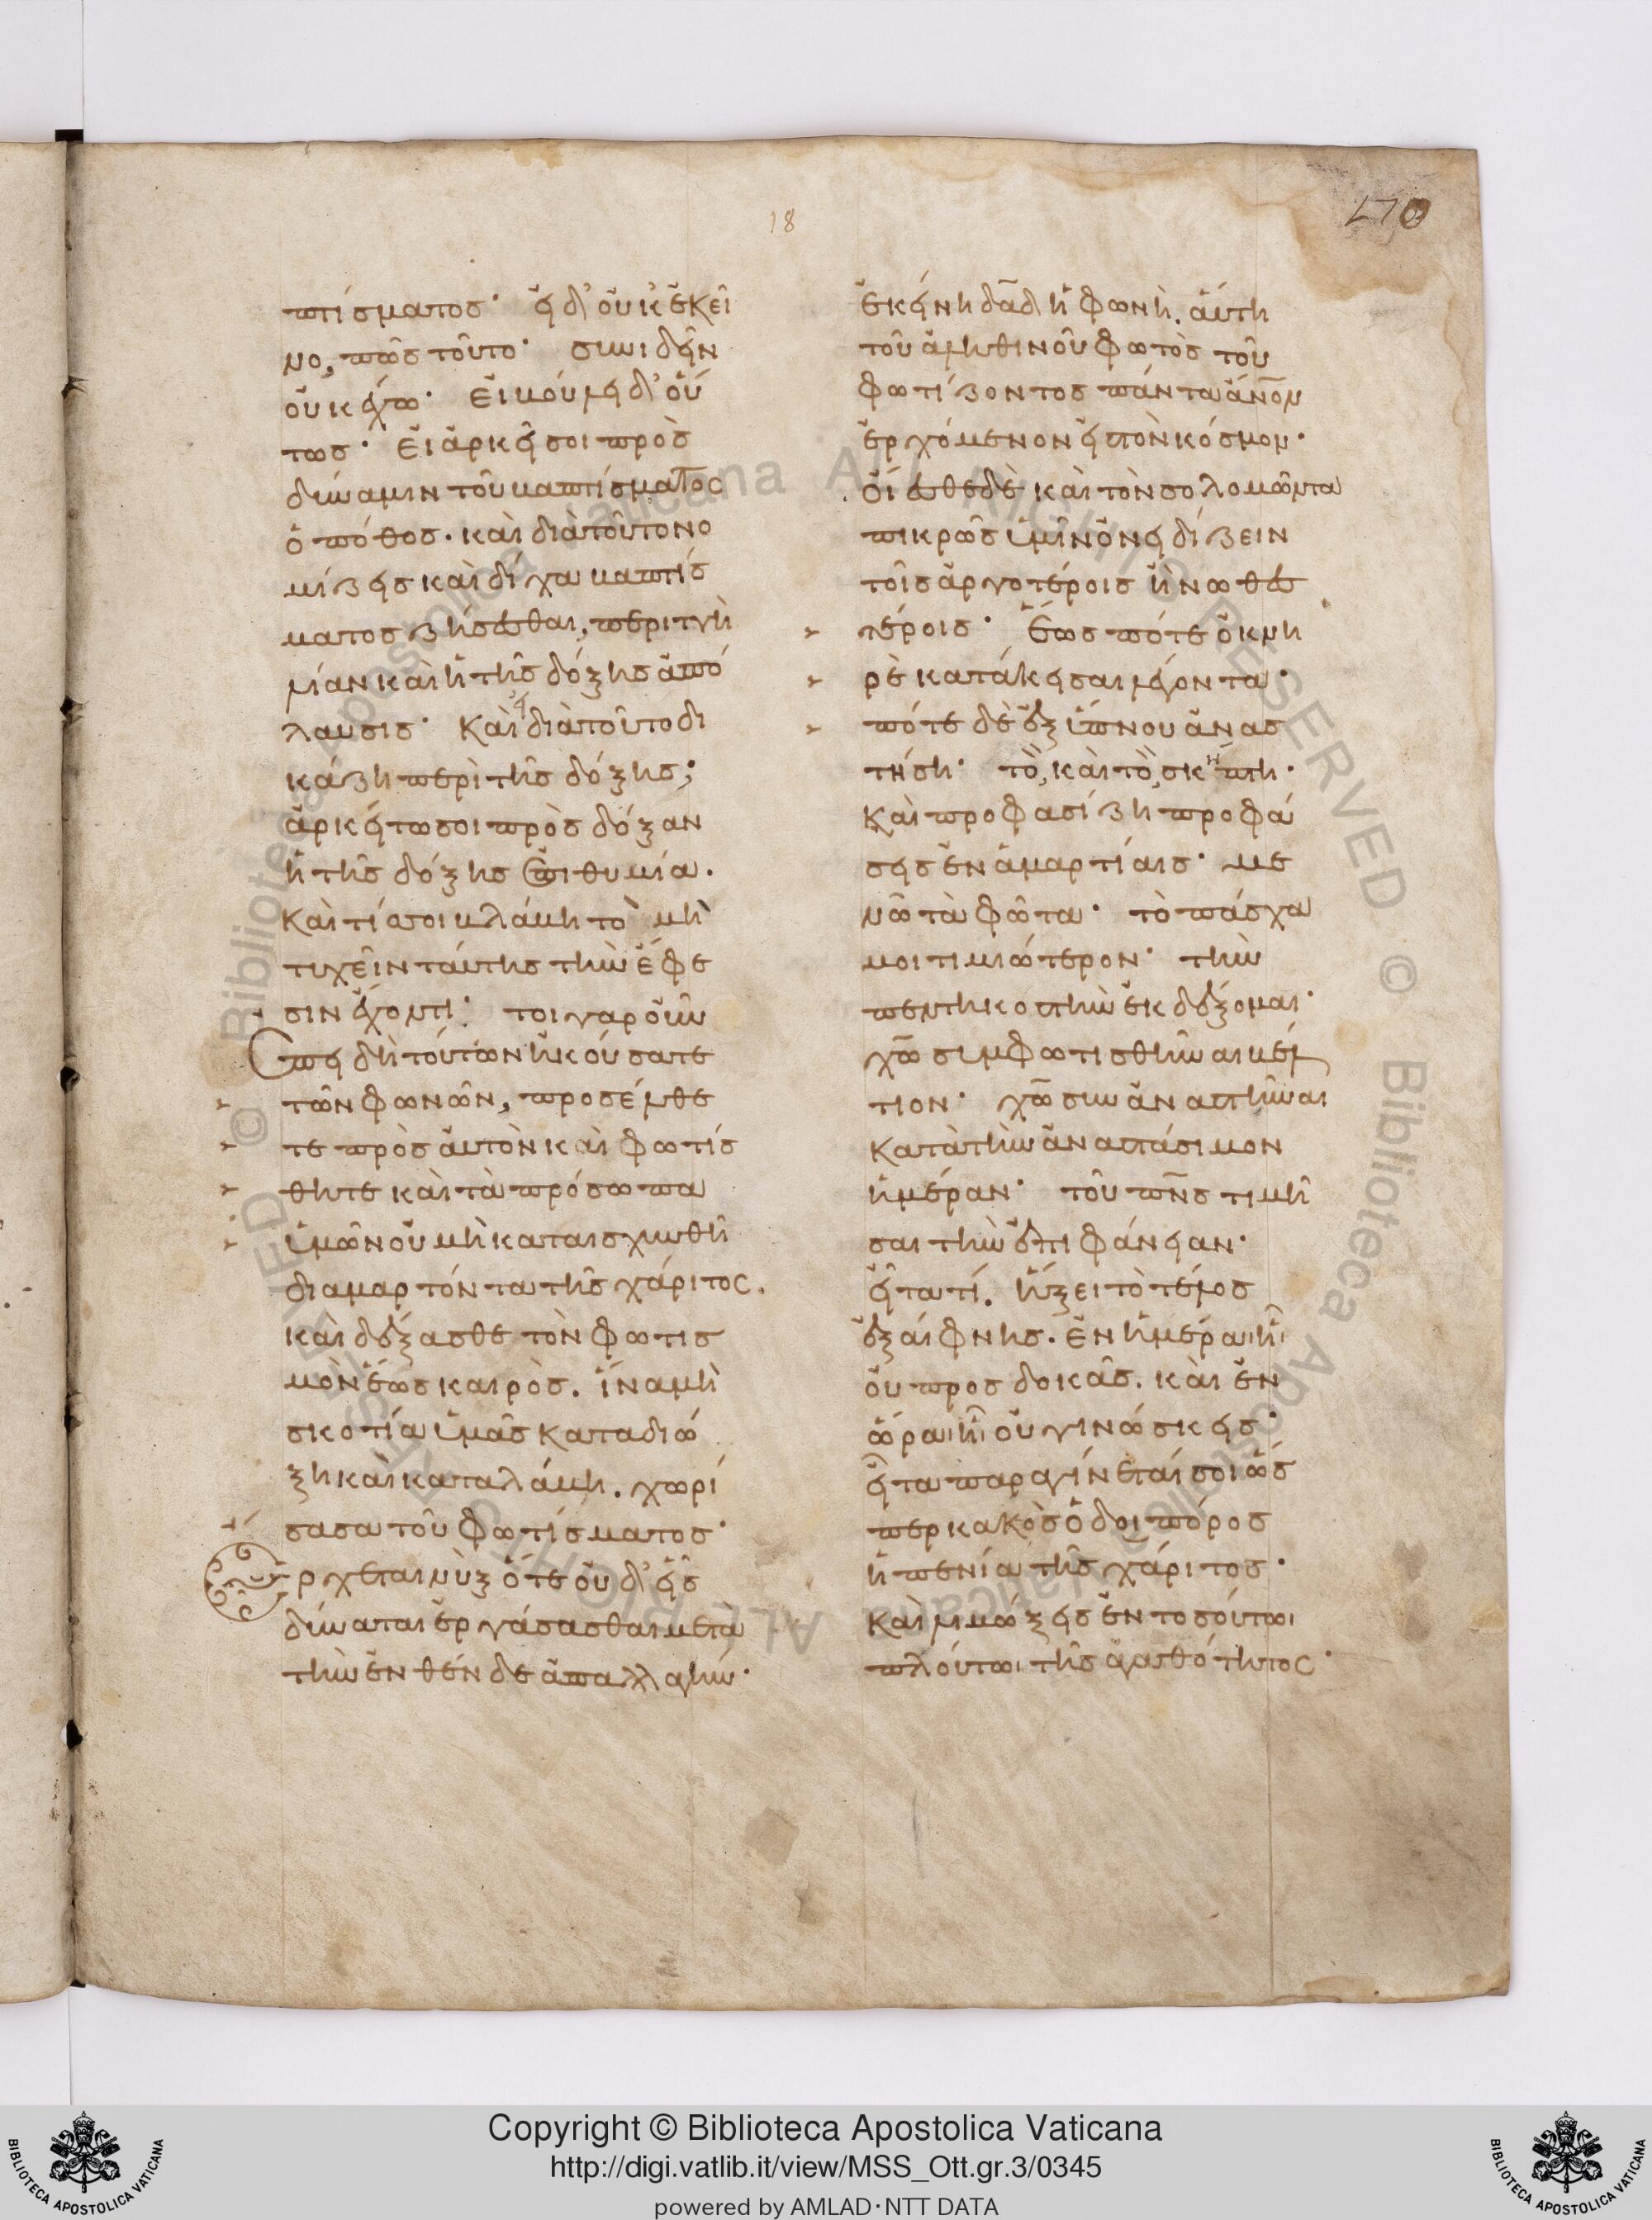 18
270
πτίσματος· εἰ δ' οὐκ ἐκεῖ
νο, πῶς τοῦτο· συνιδεῖν
οὐκ ἔχω· Εἰ βούλει δ' οὕ
τως· Εἰ ἀρκεῖ σοι πρὸς
δύναμιν τοῦ βαπτίσματος
ὁ πόθος. καὶ διὰ τοῦτο νο
μίζεις καὶ δίχα βαπτίσ
ματος ζήσεσθαι, περιττὴ
μίαν καὶ ἡ τῆς δόξης ἀπό
λαυσις· Καὶ διὰ τοῦτο δι
κάζῃ περὶ τῆς δόξης;
ἀρκείτω σοι πρὸς δόξαν
ἡ τῆς δόξης ἐπιθυμία.
Καὶ τί σοι βλάβη τὸ μὴ
τυχεῖν ταύτης τὴν ἔφε
σιν ἔχοντι· τοιγαροῦν
Ἐπεὶ δὴ τούτων ἠκούσατε
τῶν φωνῶν, προσέλθε
τε πρὸς αὐτὸν καὶ φωτίσ
θητε καὶ τὰ πρόσωπα
ὑμῶν οὐ μὴ καταισχυνθῆ
διαμαρτόντα τῆς χάριτος.
καὶ δέξασθε τὸν φωτισ
μὸν ἕως καιρὸς. ἵνα μὴ
σκοτία ὑμᾶς καταδιώ
ξη καὶ καταλάβη. χωρί
σασα τοῦ φωτίσματος·
Ἔρχεται νὺξ ὅτε οὐδεὶς
δύναται ἐργάσασθαι μετὰ
τὴν ἐνθένδε ἀπαλλαγήν·
ἐκείνη δαδ ἡ φωνὴ. αὕτη
τοῦ ἀληθινοῦ φωτὸς τοῦ
φωτίζοντος πάντα ἄνον
ἐρχόμενον εἰς τὸν κόσμον·
Οἴεσθε δὲ καὶ τὸν σολομῶντα
πικρῶς ὑμῖν ὀνειδίζειν
τοῖς ἀργοτέροις ἢ νωθεσ
τέροις· Ἕως πότε ὀκνη
ρὲ κατάκεισαι λέγοντα·
πότε δὲ ἐξ ὕπνου ἀνασ
τήση· τὸ, καὶ τὸ, σκήπτη·
Καὶ προφασίζη προφά
σεις ἐν ἁμαρτίαις· με
νῶ τὰ φῶτα· τὸ πάσχα
μοι τιμιώτερον· τὴν
πεντηκοστὴν ἐκδέξομαι·
χῶ συμφωτισθῆναι βέλ
τιον· χῶ συναναστῆναι
Κατὰ τὴν ἀναστάσιμον
ἡμέραν· τοῦ πνς τιμῆ
σαι τὴν ἐπιφάνειαν·
εἶτα τί. ἥξει τὸ τέλος
ἐξαίφνης. ἐν ἡμέραι ἧι
οὐ προσδοκᾶς. καὶ ἐν
ὥραι ἧι οὐ γινώσκεις·
εἶτα παραγίνεταί σοι ὥσ
περ κακὸς ὁδοιπόρος
ἡ πενία τῆς χάριτος·
Καὶ λιμώξεις ἐν τοσούτωι
πλούτωι τῆς ἀγαθότητος·
Copyright © Biblioteca Apostolica Vaticana
http://digi.vatlib.it/view/MSS_Ott.gr.3/0345
powered by AMLAD·NTT DATA